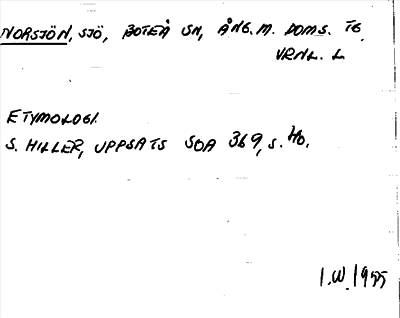 NORSJÖN, SJÖ, BOTEÅ SN, ÅNG. M. DOMS. TG
VRNL. L
ETYMOLOGI.
S. HILLER, UPPSATS SOA 369, S. 40.
I.W. 1955